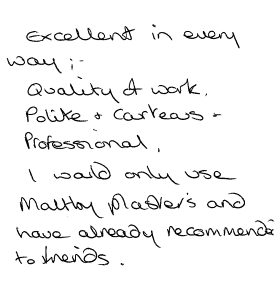 Excellent in every
way ;-
Quality of work.
Polite + Carteous -
Professional.
I would only use
Maltby Plasters and
have already recommended
to friends.